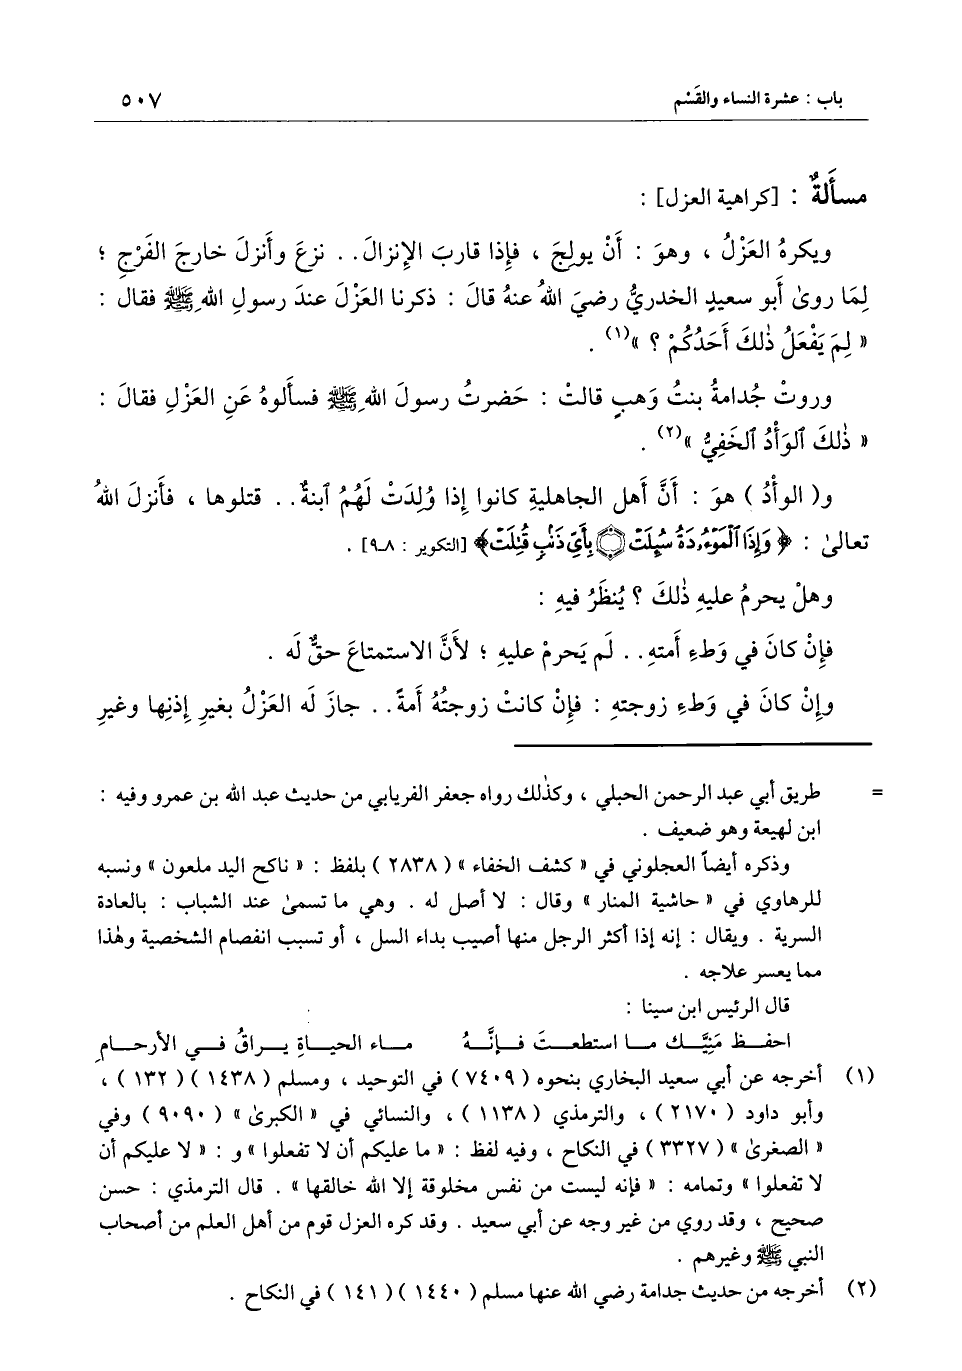 باب : عشرة النساء والقَسْم ٥٠٧
مسأَلةٌ : [كراهية العزل] :
ويكرهُ العَزْلُ ، وهوَ : أَنْ يولِجَ ، فإِذا قاربَ الإِنزالَ . . نزعَ وأَنزلَ خارجَ الفَرْجِ ؛
لِمَا روىٰ أَبو سعيدٍ الخدريُّ رضيَ اللهُ عنهُ قالَ : ذكرنا العَزْلَ عندَ رسولِ اللهِ ﷺ فقالَ :
« لِمَ يَفْعَلُ ذٰلكَ أَحَدُكُمْ ؟ »(١) .
وروتْ جُدامةُ بنتُ وَهبٍ قالتْ : حَضرتُ رسولَ اللهِ ﷺ فسأَلوهُ عَنِ العَزْلِ فقالَ :
« ذٰلكَ ٱلوَأْدُ ٱلخَفِيُّ »(٢) .
و( الوأْدُ ) هوَ : أَنَّ أَهل الجاهليةِ كانوا إِذا وُلِدَتْ لَهُمُ ٱبنةٌ . . قتلوها ، فأَنزلَ اللهُ
تعالىٰ : ﴿ وَإِذَا ٱلْمَوْءُۥدَةُ سُئِلَتْ ۝ بِأَيِّ ذَنۢبٍ قُتِلَتْ﴾ [التكوير : ٨ـ٩] .
وهلْ يحرمُ عليهِ ذٰلكَ ؟ يُنظَرُ فيهِ :
فإِنْ كانَ في وَطءِ أَمتهِ . . لَم يَحرمْ عليهِ ؛ لأَنَّ الاستمتاعَ حقٌّ لَه .
وإِنْ كانَ في وَطءِ زوجتهِ : فإِنْ كانتْ زوجتُهُ أَمةً . . جازَ لَه العَزْلُ بغيرِ إِذنِها وغيرِ
= طريق أبي عبد الرحمن الحبلي ، وكذٰلك رواه جعفر الفريابي من حديث عبد الله بن عمرو وفيه :
ابن لهيعة وهو ضعيف .
وذكره أيضاً العجلوني في « كشف الخفاء » ( ٢٨٣٨ ) بلفظ : « ناكح اليد ملعون » ونسبه
للرهاوي في « حاشية المنار » وقال : لا أصل له . وهي ما تسمىٰ عند الشباب : بالعادة
السرية . ويقال : إنه إذا أكثر الرجل منها أصيب بداء السل ، أو تسبب انفصام الشخصية وهٰذا
مما يعسر علاجه .
قال الرئيس ابن سينا :
احفـظ مَنِيَّـك مـا استطعـتَ فـإنَّـهُ مـاء الحيـاةِ يـراقُ فـي الأرحـامِ
(١) أخرجه عن أبي سعيد البخاري بنحوه ( ٧٤٠٩ ) في التوحيد ، ومسلم ( ١٤٣٨ ) ( ١٣٢ ) ،
وأبو داود ( ٢١٧٠ ) ، والترمذي ( ١١٣٨ ) ، والنسائي في « الكبرىٰ » ( ٩٠٩٠ ) وفي
« الصغرىٰ » ( ٣٣٢٧ ) في النكاح ، وفيه لفظ : « ما عليكم أن لا تفعلوا » و : « لا عليكم أن
لا تفعلوا » وتمامه : « فإنه ليست من نفس مخلوقة إلا الله خالقها » . قال الترمذي : حسن
صحيح ، وقد روي من غير وجه عن أبي سعيد . وقد كره العزل قوم من أهل العلم من أصحاب
النبي ﷺ وغيرهم .
(٢) أخرجه من حديث جدامة رضي الله عنها مسلم ( ١٤٤٠ ) ( ١٤١ ) في النكاح .